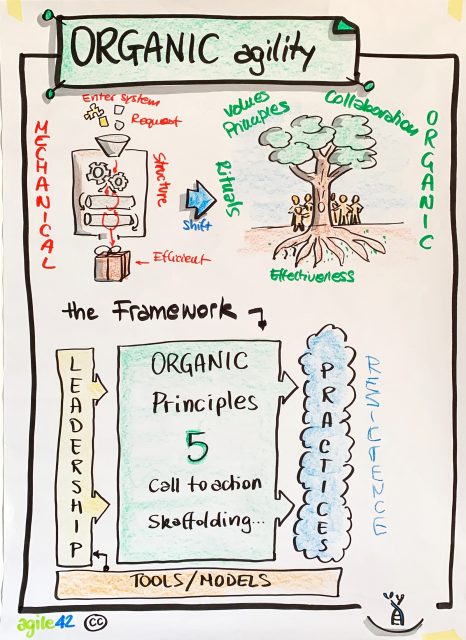 ORGANIC agility
Enter system
Request
MECHANICAL
Structure
Efficient
Shift
Values
Principles
Collaboration
ORGANIC
Rituals
Effectiveness
the Framework
LEADERSHIP
ORGANIC
Principles
5
Call to action
Skaffolding...
PRACTICES
RESICTENCE
TOOLS/MODELS
agile42 CC